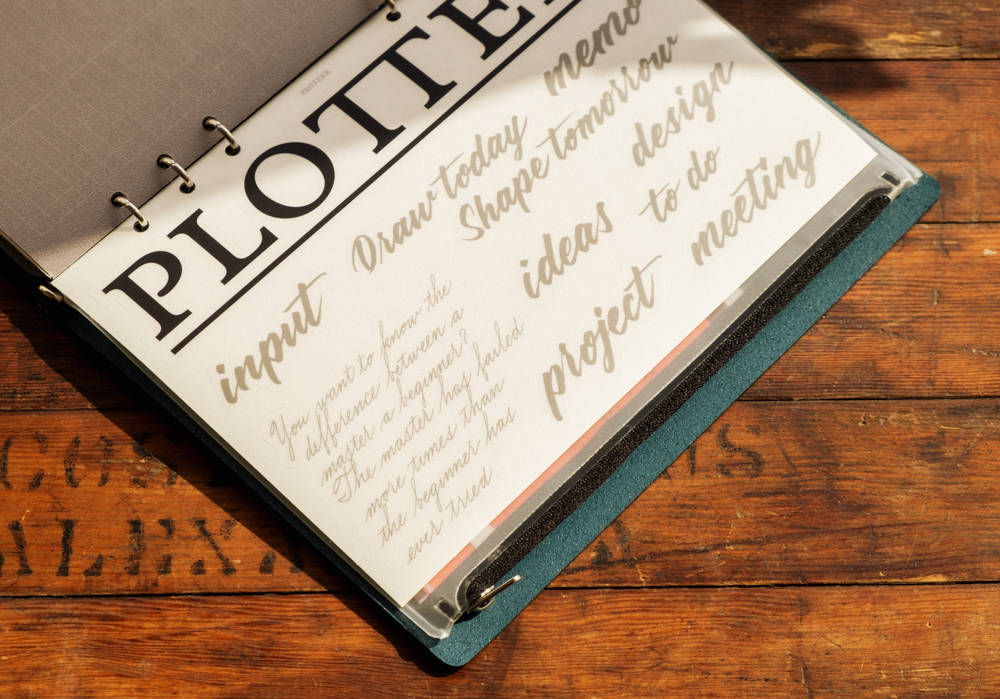 PLOTTE
PLOTTER
memo
Draw today
Shape tomorrow
design
input
ideas
to do
meeting
project
You want to know the
difference between a
master a beginner?
The master has failed
more times than
the beginner has
ever tried.